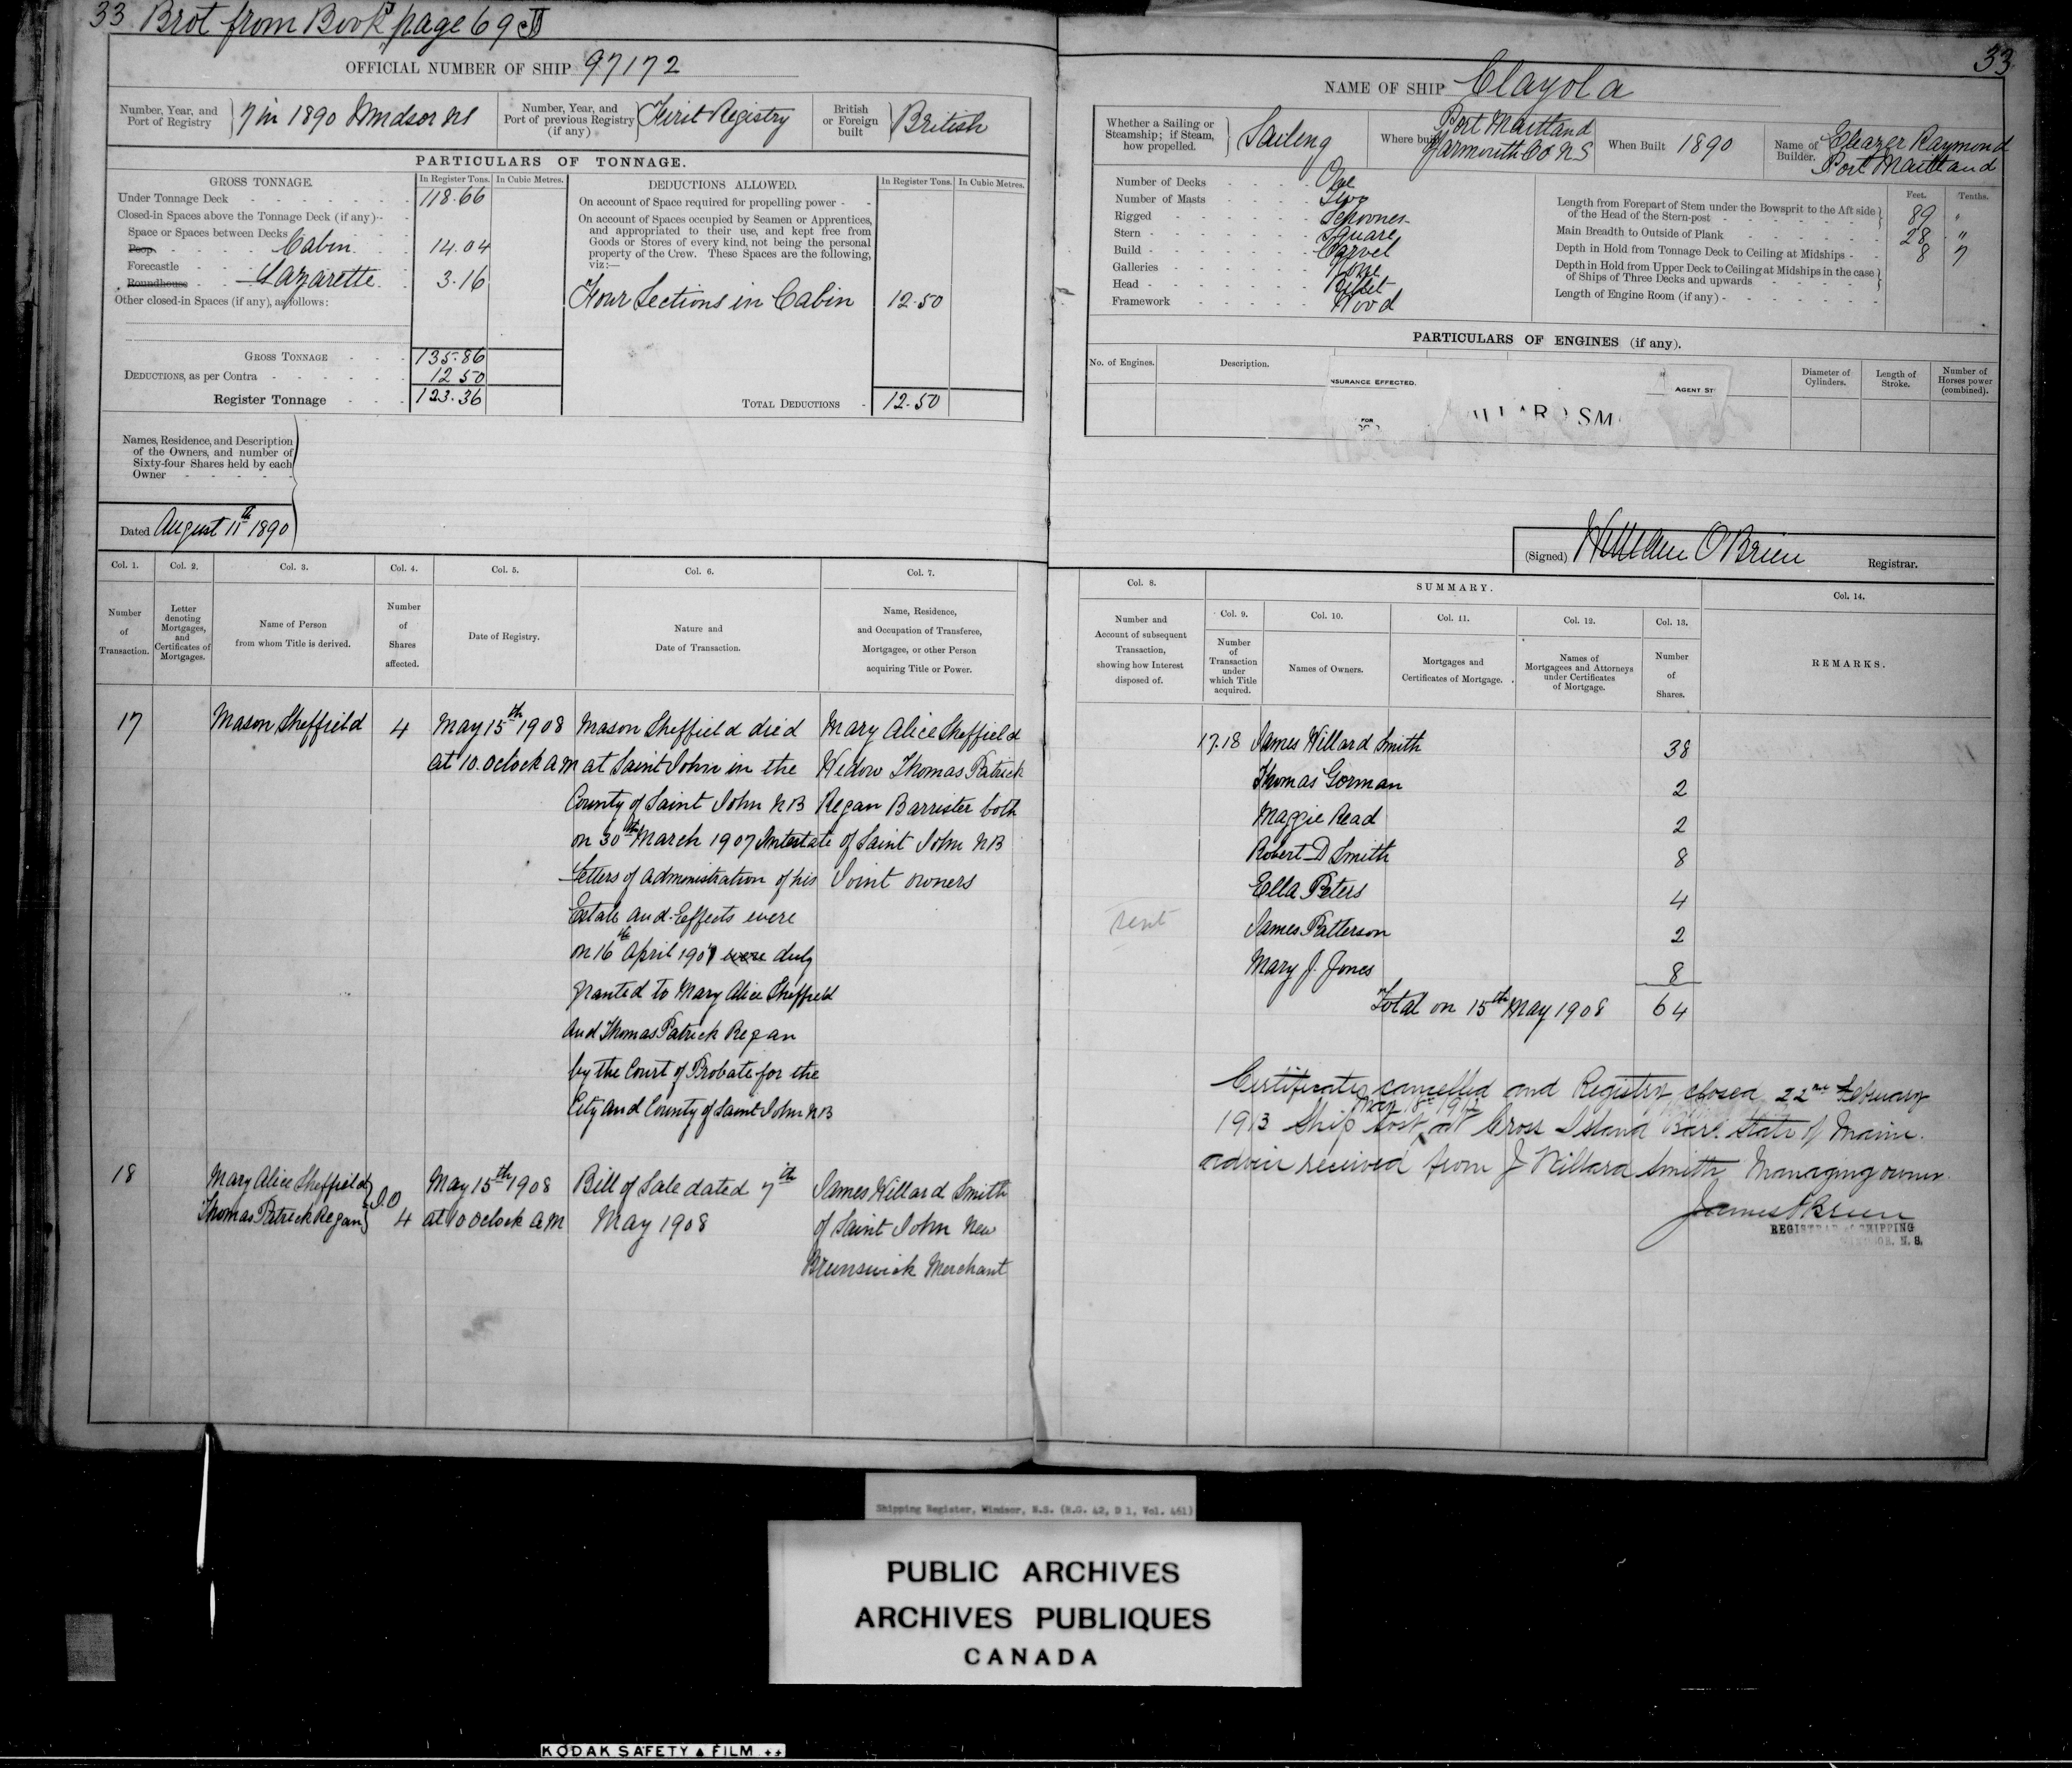 33 Brot from Book page 69
OFFICIAL NUMBER OF SHIP 97172
Number, Year, and Port of Registry } 7 in 1890 Windsor NS
Number, Year, and Port of previous Registry (if any) } First Registry
British or Foreign built } British
PARTICULARS OF TONNAGE.
GROSS TONNAGE. In Register Tons. In Cubic Metres.
Under Tonnage Deck 118.66
Closed-in Spaces above the Tonnage Deck (if any)
Space or Spaces between Decks
Poop Cabin 14.04
Forecastle
Roundhouse Lazarette 3.16
Other closed-in Spaces (if any), as follows:
GROSS TONNAGE 135.86
DEDUCTIONS, as per Contra 12 50
Register Tonnage 123.36
DEDUCTIONS ALLOWED. In Register Tons. In Cubic Metres.
On account of Space required for propelling power
On account of Spaces occupied by Seamen or Apprentices,
and appropriated to their use, and kept free from
Goods or Stores of every kind, not being the personal
property of the Crew. These Spaces are the following,
viz:—
Four Sections in Cabin 12.50
TOTAL DEDUCTIONS 12.50
Names, Residence, and Description
of the Owners, and number of
Sixty-four Shares held by each
Owner
Dated August 11th 1890
Col. 1. Col. 2. Col. 3. Col. 4. Col. 5. Col. 6. Col. 7.
Number of Transaction.
Letter denoting Mortgages, and Certificates of Mortgages.
Name of Person from whom Title is derived.
Number of Shares affected.
Date of Registry.
Nature and Date of Transaction.
Name, Residence, and Occupation of Transferee, Mortgagee, or other Person acquiring Title or Power.
17 Mason Sheffield 4 May 15th 1908 Mason Sheffield died Mary Alice Sheffield
at 10. Oclock AM at Saint John in the Widow Thomas Patrick
County of Saint John NB Regan Barrister both
on 30th March 1907 Intestate of Saint John NB
Letters of administration of his Joint owners
Estate and Effects were
on 16th April 1907 were duly
granted to Mary Alice Sheffield
and Thomas Patrick Regan
by the Court of Probate for the
City and County of Saint John NB
18 Mary Alice Sheffield } JO May 15th 1908 Bill of Sale dated 7th James Willard Smith
Thomas Patrick Regan } 4 at 10 Oclock AM May 1908 of Saint John New
Brunswick Merchant
33
NAME OF SHIP Clayola
Whether a Sailing or Steamship; if Steam, how propelled. } Sailing
Where built Port Maitland Yarmouth Co NS
When Built 1890
Name of Builder. Eleazer Raymond Port Maitland
Number of Decks One
Number of Masts Two
Rigged Schooner
Stern Square
Build Carvel
Galleries None
Head Billet
Framework Wood
Feet. Tenths.
Length from Forepart of Stem under the Bowsprit to the Aft side of the Head of the Stern-post 89 "
Main Breadth to Outside of Plank 28 "
Depth in Hold from Tonnage Deck to Ceiling at Midships 8 7
Depth in Hold from Upper Deck to Ceiling at Midships in the case of Ships of Three Decks and upwards
Length of Engine Room (if any)
PARTICULARS OF ENGINES (if any).
No. of Engines. Description. Diameter of Cylinders. Length of Stroke. Number of Horses power (combined).
NSURANCE EFFECTED.
AGENT ST
FOR
(Signed) William O'Brien Registrar.
Col. 8. SUMMARY. Col. 14.
Col. 9. Col. 10. Col. 11. Col. 12. Col. 13.
Number and Account of subsequent Transaction, showing how Interest disposed of.
Number of Transaction under which Title acquired.
Names of Owners.
Mortgages and Certificates of Mortgage.
Names of Mortgagees and Attorneys under Certificates of Mortgage.
Number of Shares.
REMARKS.
17.18 James Willard Smith 38
Thomas Gorman 2
Maggie Read 2
Robert D Smith 8
Ella Peters 4
sent
James Patterson 2
Mary J. Jones 8
Total on 15th May 1908 64
Certificates cancelled and Registry closed 22nd February
1913 Ship lost at Cross Island Bar. State of Maine.
advice received from J Willard Smith Managing owner.
James OBrien
REGISTRAR of SHIPPING
WINDSOR, N. S.
Shipping Register, Windsor, N.S. (R.G. 42, D 1, Vol. 461)
PUBLIC ARCHIVES
ARCHIVES PUBLIQUES
CANADA
KODAK SAFETY FILM